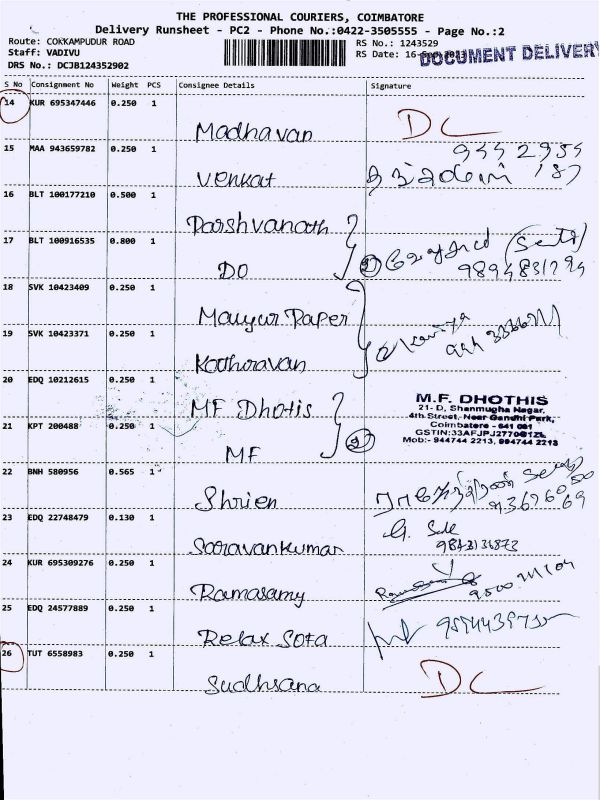 THE PROFESSIONAL COURIERS, COIMBATORE
Delivery Runsheet - PC2 - Phone No.:0422-3505555 - Page No.:2
Route: COKKAMPUDUR ROAD
RS No.: 1243529
Staff: VADIVU
RS Date: 16-Sep
DOCUMENT DELIVERY
DRS No.: DCJB124352902
S No Consignment No Weight PCS Consignee Details Signature
14 KUR 695347446 0.250 1
Madhavan DC
15 MAA 943659782 0.250 1
Venkat
16 BLT 100177210 0.500 1
Parshvanath
17 BLT 100916535 0.800 1
DO
9894831294
18 SVK 10423409 0.250 1
Mauyur Paper
19 SVK 10423371 0.250 1
Kathiravan
20 EDQ 10212615 0.250 1
MF Dhotis
M.F. DHOTHIS
21- D, Shanmugha Nagar,
4th Street, Near Gandhi Park,
Coimbatore - 641 001
GSTIN:33AFJPJ2770B1ZL
Mob:- 944744 2213, 994744 2213
21 KPT 200488 0.250 1
MF
22 BNH 580956 0.565 1
Shrien
23 EDQ 22748479 0.130 1
Saravankumar
9843136873
24 KUR 695309276 0.250 1
Ramasamy
25 EDQ 24577889 0.250 1
Relax Sofa
26 TUT 6558983 0.250 1
Sudhsana DC